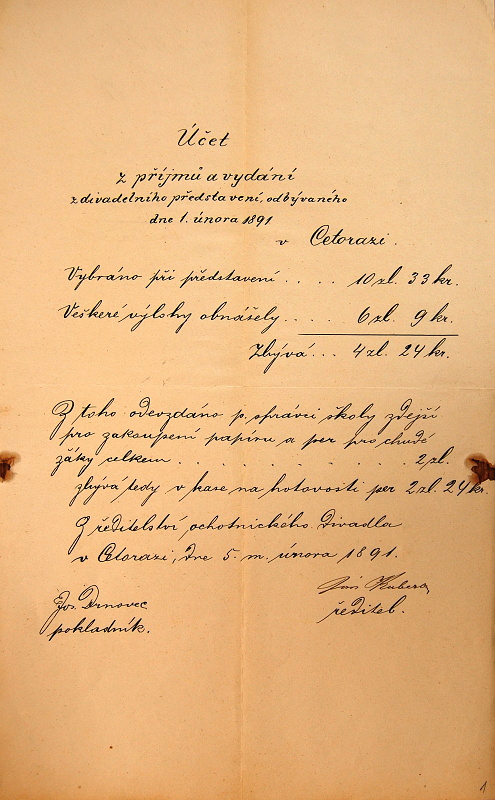 Účet
z příjmů a vydání
z divadelního představení, odbývaného
dne 1. února 1891
v Cetorazi.
Vybráno při představení . . . . 10 zl. 33 kr.
Veškeré výlohy obnášely . . . . 6 zl. 9 kr.
Zbývá . . . 4 zl. 24 kr.
Z toho odevzdáno p. správci školy zdejší
pro zakoupení papíru a per pro chudé
žáky celkem . . . . . . . . 2 zl.
zbývá tedy v kase na hotovosti per 2 zl. 24 kr.
Z ředitelství ochotnického divadla
v Cetorazi, dne 5. m. února 1891.
Jos. Drnovec
pokladník.
Kubera
ředitel.
1